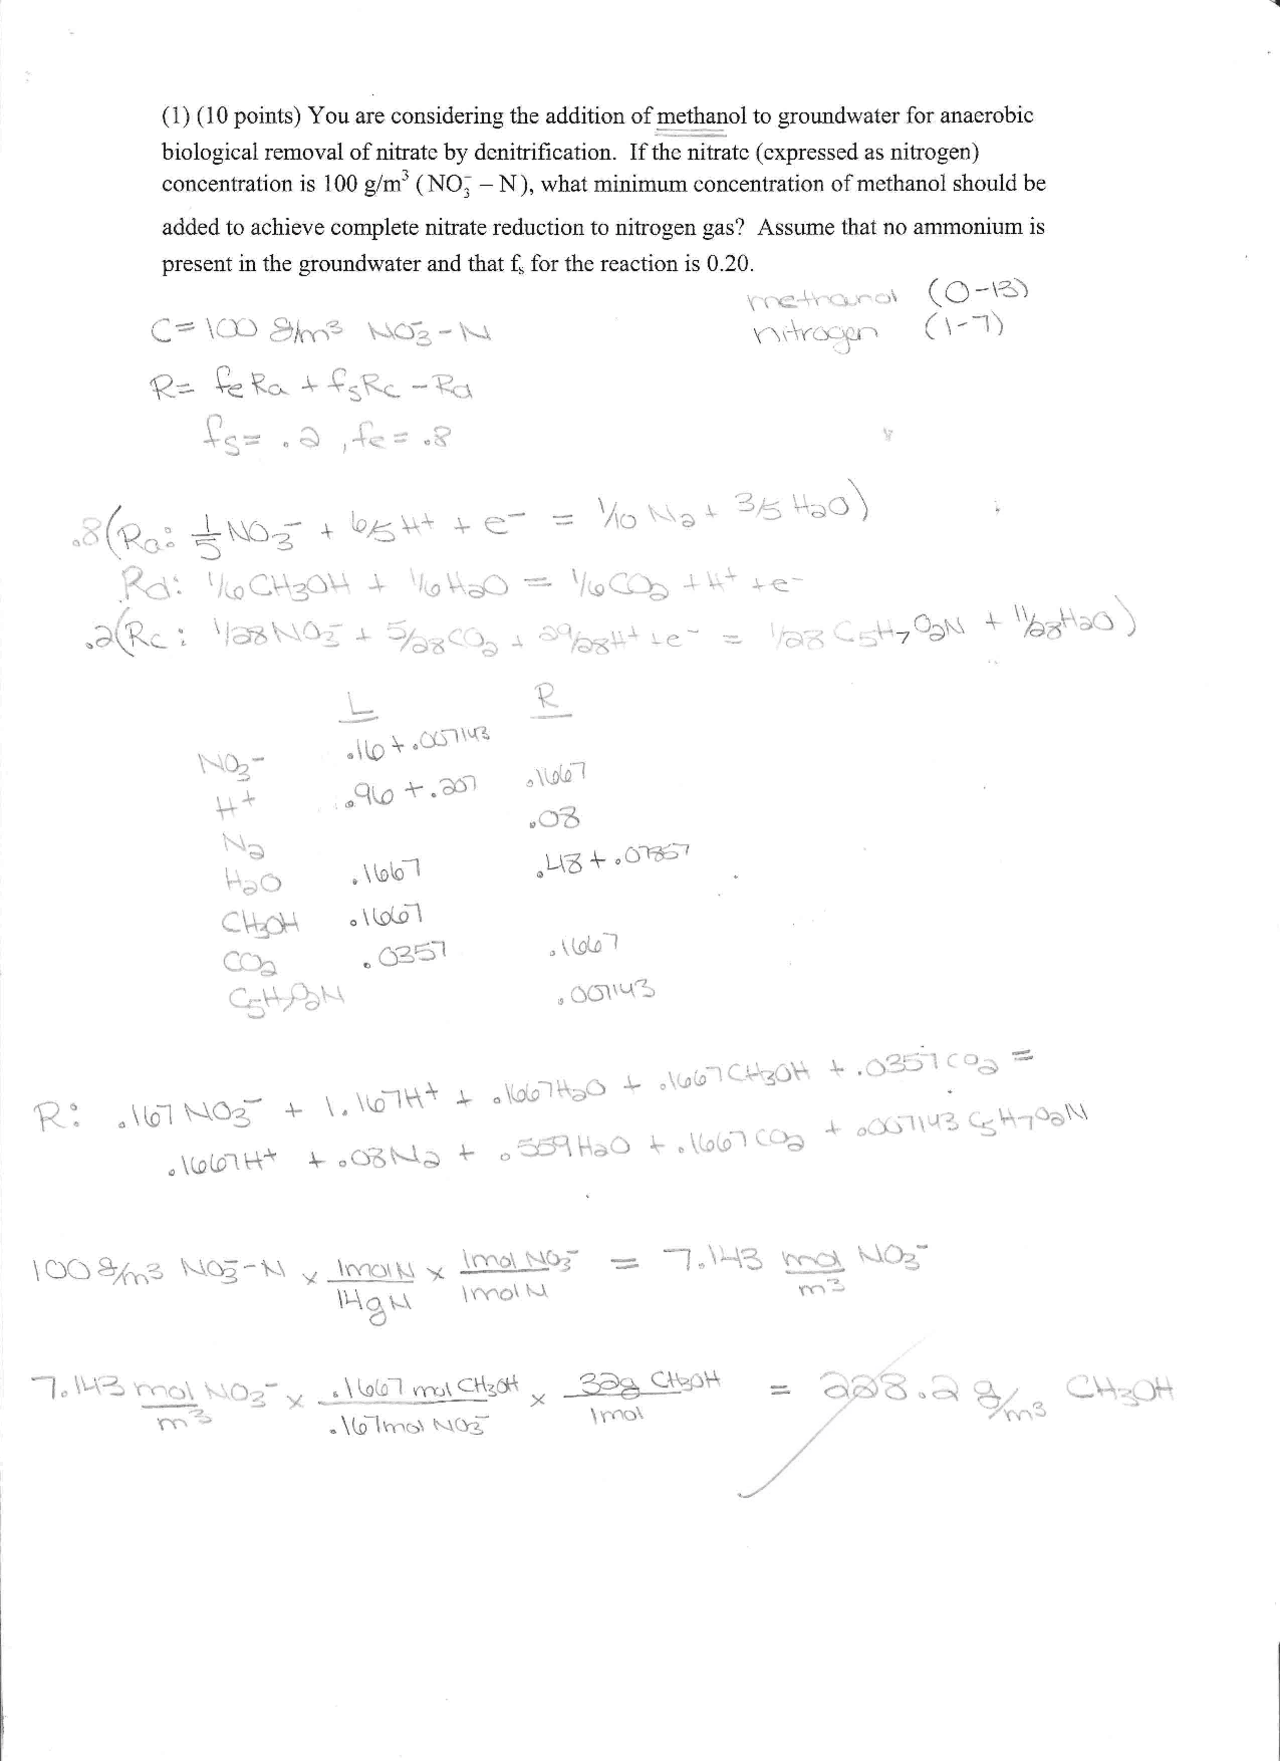 (1) (10 points) You are considering the addition of methanol to groundwater for anaerobic
biological removal of nitrate by denitrification. If the nitrate (expressed as nitrogen)
concentration is 100 g/m³ (NO₃⁻ – N), what minimum concentration of methanol should be
added to achieve complete nitrate reduction to nitrogen gas? Assume that no ammonium is
present in the groundwater and that fₛ for the reaction is 0.20.
methanol (0-13)
nitrogen (1-7)
C = 100 g/m³ NO₃⁻-N
R = fe Ra + fs Rc - Rd
fs = .2, fe = .8
.8(Ra: 1/5 NO₃⁻ + 6/5 H⁺ + e⁻ = 1/10 N₂ + 3/5 H₂O)
Rd: 1/6 CH₃OH + 1/6 H₂O = 1/6 CO₂ + H⁺ + e⁻
.2(Rc: 1/28 NO₃⁻ + 5/28 CO₂ + 29/28 H⁺ + e⁻ = 1/28 C₅H₇O₂N + 11/28 H₂O)
L R
NO₃⁻ .16 + .007143
H⁺ .96 + .207 .1667
N₂ .08
H₂O .1667 .48 + .07857
CH₃OH .1667
CO₂ .0357 .1667
C₅H₇O₂N .007143
R: .167 NO₃⁻ + 1.167 H⁺ + .1667 H₂O + .1667 CH₃OH + .0357 CO₂ =
.1667 H⁺ + .08 N₂ + .559 H₂O + .1667 CO₂ + .007143 C₅H₇O₂N
100 g/m³ NO₃⁻-N × 1 mol N / 14 g N × 1 mol NO₃⁻ / 1 mol N = 7.143 mol/m³ NO₃⁻
7.143 mol NO₃⁻/m³ × .1667 mol CH₃OH / .167 mol NO₃⁻ × 32g CH₃OH / 1 mol = 228.2 g/m³ CH₃OH